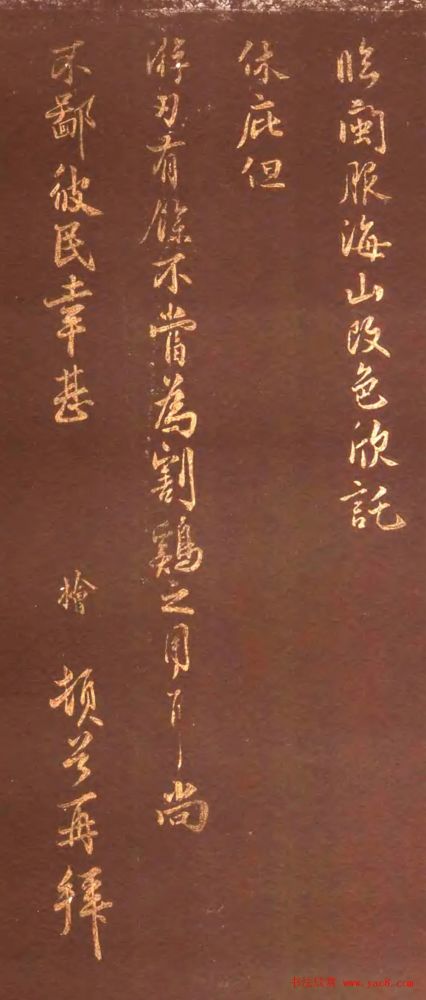 臨閩服海山改色欣託
休庇但
游刃有餘不當為割鷄之用耳尚
不鄙彼民幸甚 檜 頓首再拜
书法欣赏 www.yac8.com